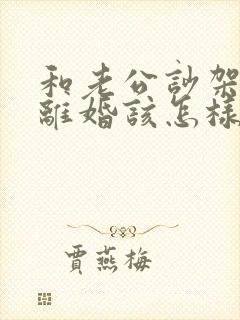 和老公訪架
離婚該怎樣
賈燕梅